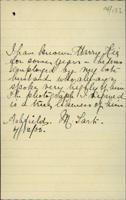 I have known Harry Hir
for some years - he was
employed by my late
husband who always
spoke very highly of him
The photograph I
is a true likeness of him
Ashfield. M. Tart.
4/12/05.